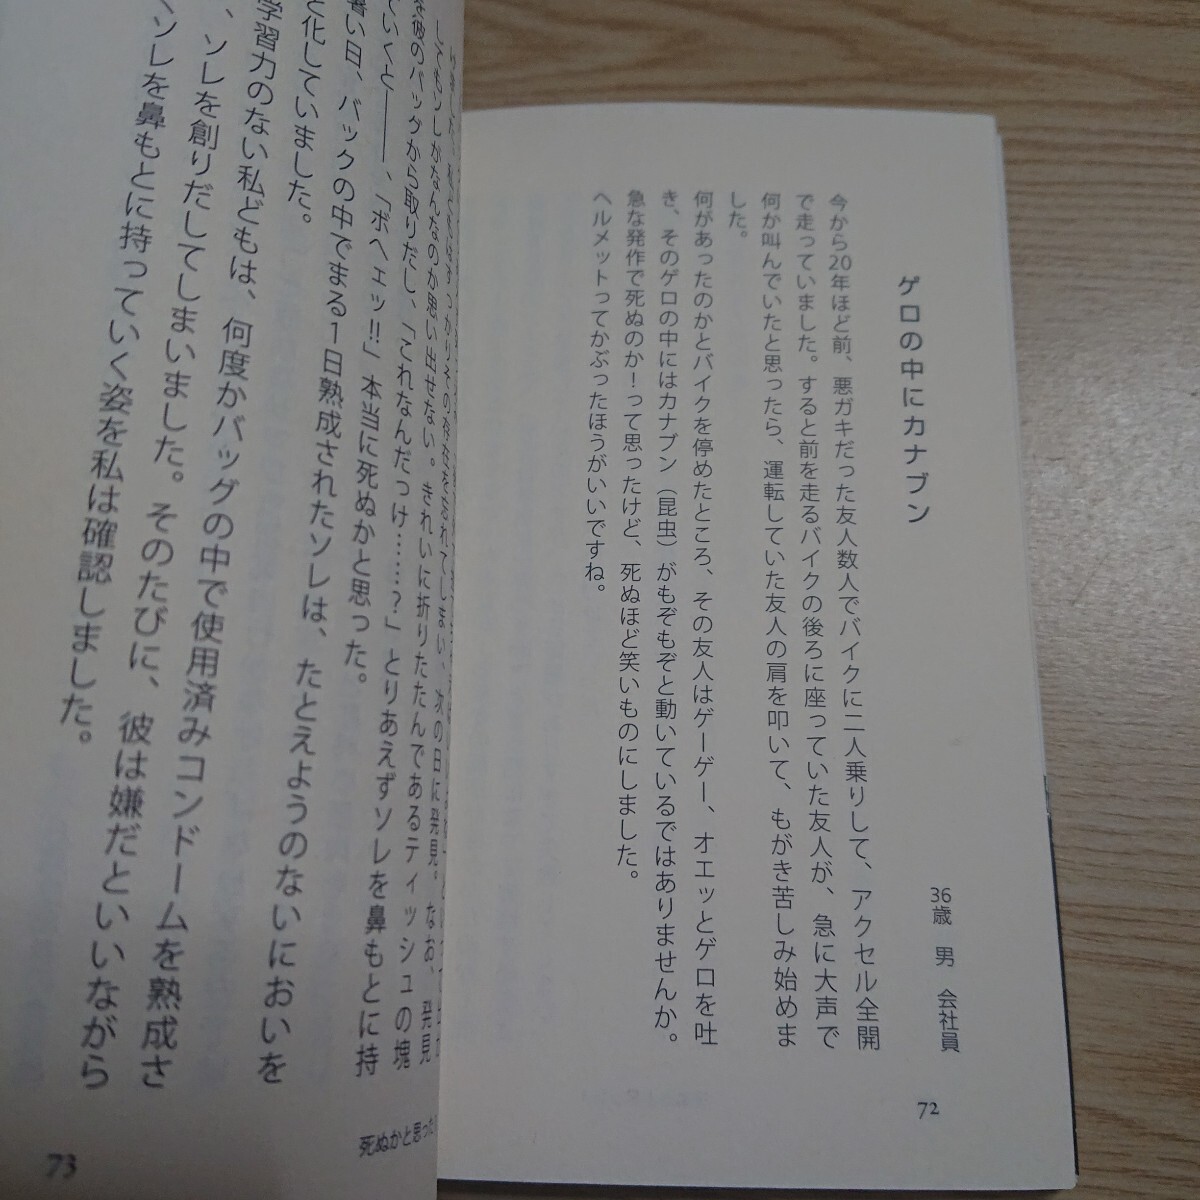 ゲロの中にカナブン
36歳 男 会社員
今から20年ほど前、悪ガキだった友人数人でバイクに二人乗りして、アクセル全開
で走っていました。すると前を走るバイクの後ろに座っていた友人が、急に大声で
何か叫んでいたと思ったら、運転していた友人の肩を叩いて、もがき苦しみ始めま
した。
何があったのかとバイクを停めたところ、その友人はゲーゲー、オエッとゲロを吐
き、そのゲロの中にはカナブン（昆虫）がもぞもぞと動いているではありませんか。
急な発作で死ぬのか！って思ったけど、死ぬほど笑いものにしました。
ヘルメットってかぶったほうがいいですね。
72
してもソレがなんなのか思い出せない。きれいに折りたたんであるティッシュの塊
彼のバッグから取りだし、「これなんだっけ……？」とりあえずソレを鼻もとに持
ていくと――、「ボヘェッ!!」本当に死ぬかと思った。
暑い日、バックの中でまる1日熟成されたソレは、たとえようのないにおいを
と化していました。
学習力のない私どもは、何度かバッグの中で使用済みコンドームを熟成さ
、ソレを創りだしてしまいました。そのたびに、彼は嫌だといいながら
ソレを鼻もとに持っていく姿を私は確認しました。
死ぬかと思った
73